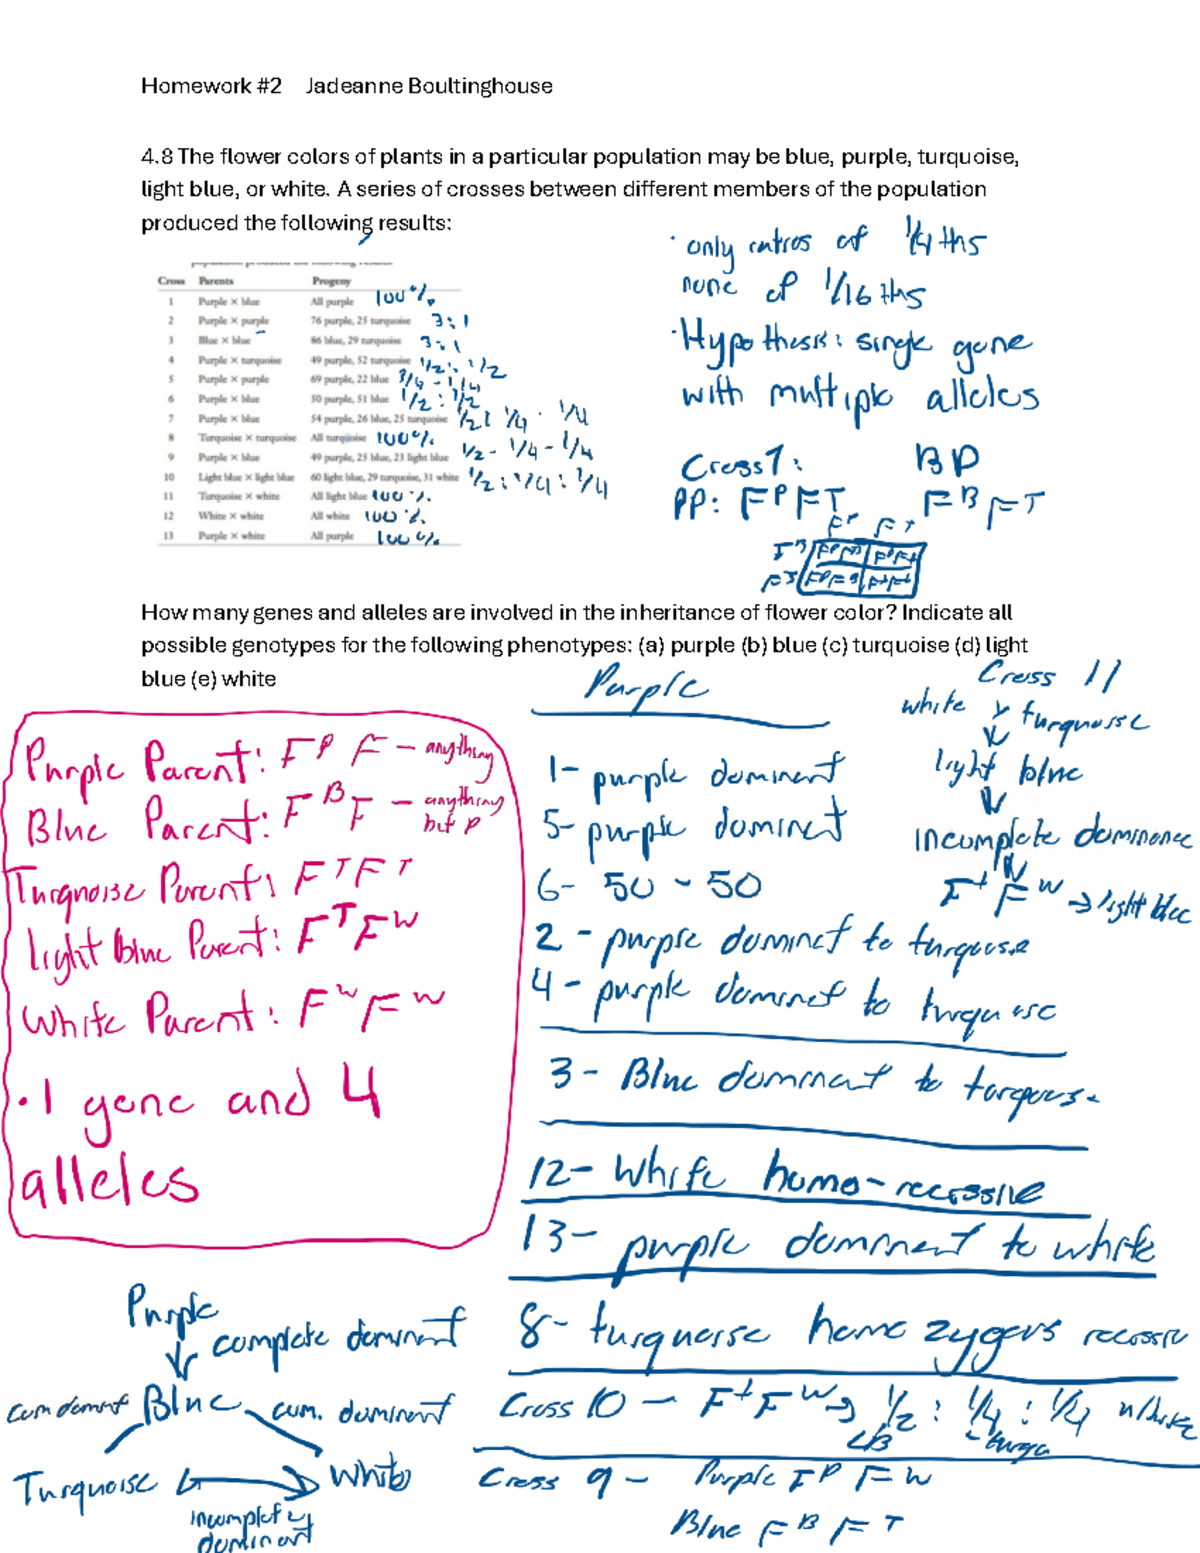 Homework #2 Jadeanne Boultinghouse
4.8 The flower colors of plants in a particular population may be blue, purple, turquoise,
light blue, or white. A series of crosses between different members of the population
produced the following results:
Cross Parents Progeny
1 Purple × blue All purple 100%
2 Purple × purple 76 purple, 25 turquoise 3:1
3 Blue × blue 86 blue, 29 turquoise 3:1
4 Purple × turquoise 49 purple, 52 turquoise 1/2 : 1/2
5 Purple × purple 69 purple, 22 blue 3/4 - 1/4
6 Purple × blue 50 purple, 51 blue 1/2 : 1/2
7 Purple × blue 54 purple, 26 blue, 25 turquoise 1/2 : 1/4 . 1/4
8 Turquoise × turquoise All turquoise 100%
9 Purple × blue 49 purple, 25 blue, 23 light blue 1/2 - 1/4 - 1/4
10 Light blue × light blue 60 light blue, 29 turquoise, 31 white 1/2 : 1/4 : 1/4
11 Turquoise × white All light blue 100%
12 White × white All white 100%
13 Purple × white All purple 100%
· only of 1/4 ths
none of 1/16 ths
· Hypothesis: single gene
with multiple alleles
Cross 7: BP
PP: F^P F^T F^B F^T
How many genes and alleles are involved in the inheritance of flower color? Indicate all
possible genotypes for the following phenotypes: (a) purple (b) blue (c) turquoise (d) light
blue (e) white
Purple Parent: F^P F - anything
Blue Parent: F^B F - anything
but p
Turquoise Parent: F^T F^T
light blue Parent: F^T F^W
White Parent: F^W F^W
· 1 gene and 4
alleles
Purple
1- purple dominant
5- purple dominct
6- 50 - 50
2 - purple dominct to turquose
4 - purple dominct to turquose
3 - Blue dominant to torquos-
12- White homo-recessive
13- purple dominent to white
8- turquoise homozygous recessiv
Cross 10 - F^t F^W → 1/2 : 1/4 : 1/4 white
LB - turqo
Cross 9 - Purple F^P F^W
Blue F^B F^T
Cross 11
white × turquoise
light blue
incomplete dominance
F^t F^W → light blue
Purple
complete dominent
com domint Blue com. dominent
Turquoise White
incomplete
dominant